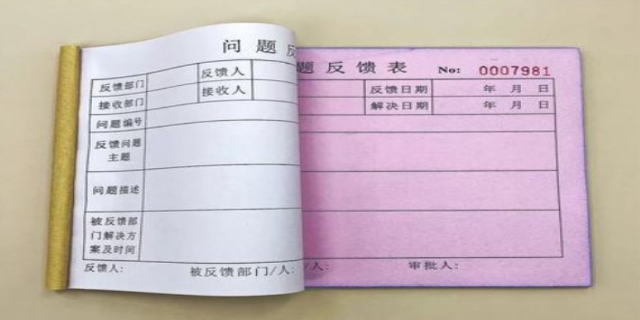 问题反
题反馈表 No: 0007981
反馈部门 反馈人 反馈日期 年 月 日
接收部门 接收人 解决日期 年 月 日
问题编号
反馈问题
主题
问题描述
被反馈部
门解决方
案及时间
反馈人: 被反馈部门/人: /人: 审批人: